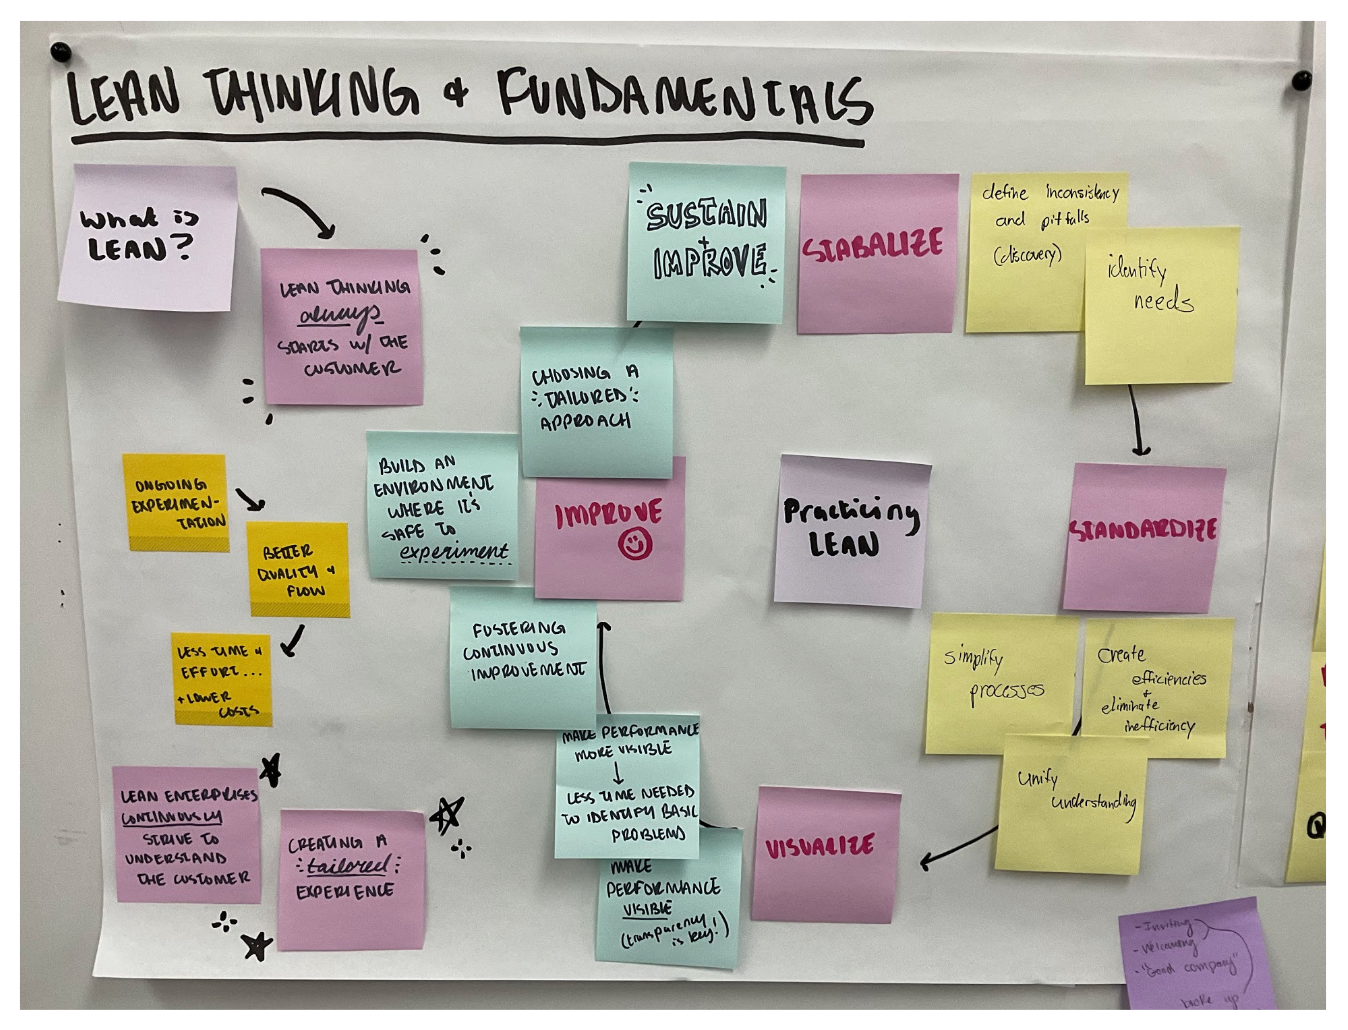 LEAN THINKING & FUNDAMENTALS
What is
LEAN?
LEAN THINKING
always
STARTS W/ THE
CUSTOMER
ONGOING
EXPERIMEN-
TATION
BETTER
QUALITY &
FLOW
LESS TIME &
EFFORT...
+ LOWER
COSTS
LEAN ENTERPRISES
CONTINUOUSLY
STRIVE TO
UNDERSTAND
THE CUSTOMER
CREATING A
tailored
EXPERIENCE
Practicing
LEAN
STABALIZE
define inconsistency
and pitfalls
(discovery)
identify
needs
STANDARDIZE
simplify
processes
create
efficiencies
+
eliminate
inefficiency
unify
understanding
VISUALIZE
MAKE
PERFORMANCE
VISIBLE
(transparency
is key!)
MAKE PERFORMANCE
MORE VISIBLE
↓
LESS TIME NEEDED
TO IDENTIFY BASIC
PROBLEMS
IMPROVE
FOSTERING
CONTINUOUS
IMPROVEMENT
BUILD AN
ENVIRONMENT
WHERE IT'S
SAFE TO
experiment
CHOOSING A
TAILORED
APPROACH
SUSTAIN
+
IMPROVE
- Inviting
- Welcoming
- "Good company"